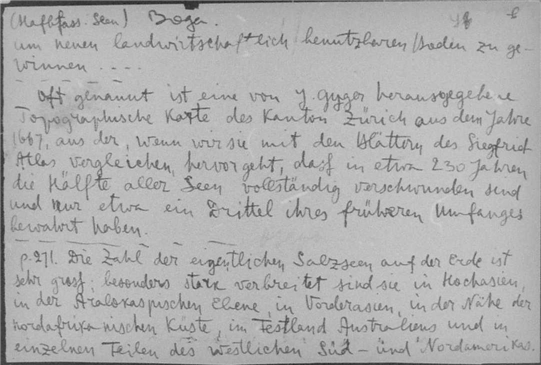 (Halbfass. Seen) Boga.
um neuen landwirtschaftlich benutzbaren Boden zu ge-
winnen ....
Oft genannt ist eine von J. Gyger herausgegebene
Topographische Karte des Kanton Zürich aus dem Jahre
1667, aus der, wenn wir sie mit den Blättern des Siegfried
Atlas vergleichen, hervorgeht, dass in etwa 230 Jahren
die Hälfte aller Seen vollständig verschwunden sind
und nur etwa ein Drittel ihres früheren Umfanges
bewahrt haben.
p.271. Die Zahl der eigentlichen Salzseen auf der Erde ist
sehr gross; besonders stark verbreitet sind sie in Hochasien,
in der Aralokaspischen Ebene, in Vorderasien, in der Nähe der
nordafrikanischen Küste, im Festland Australiens und in
einzelnen Teilen des westlichen Süd- und Nordamerikas.